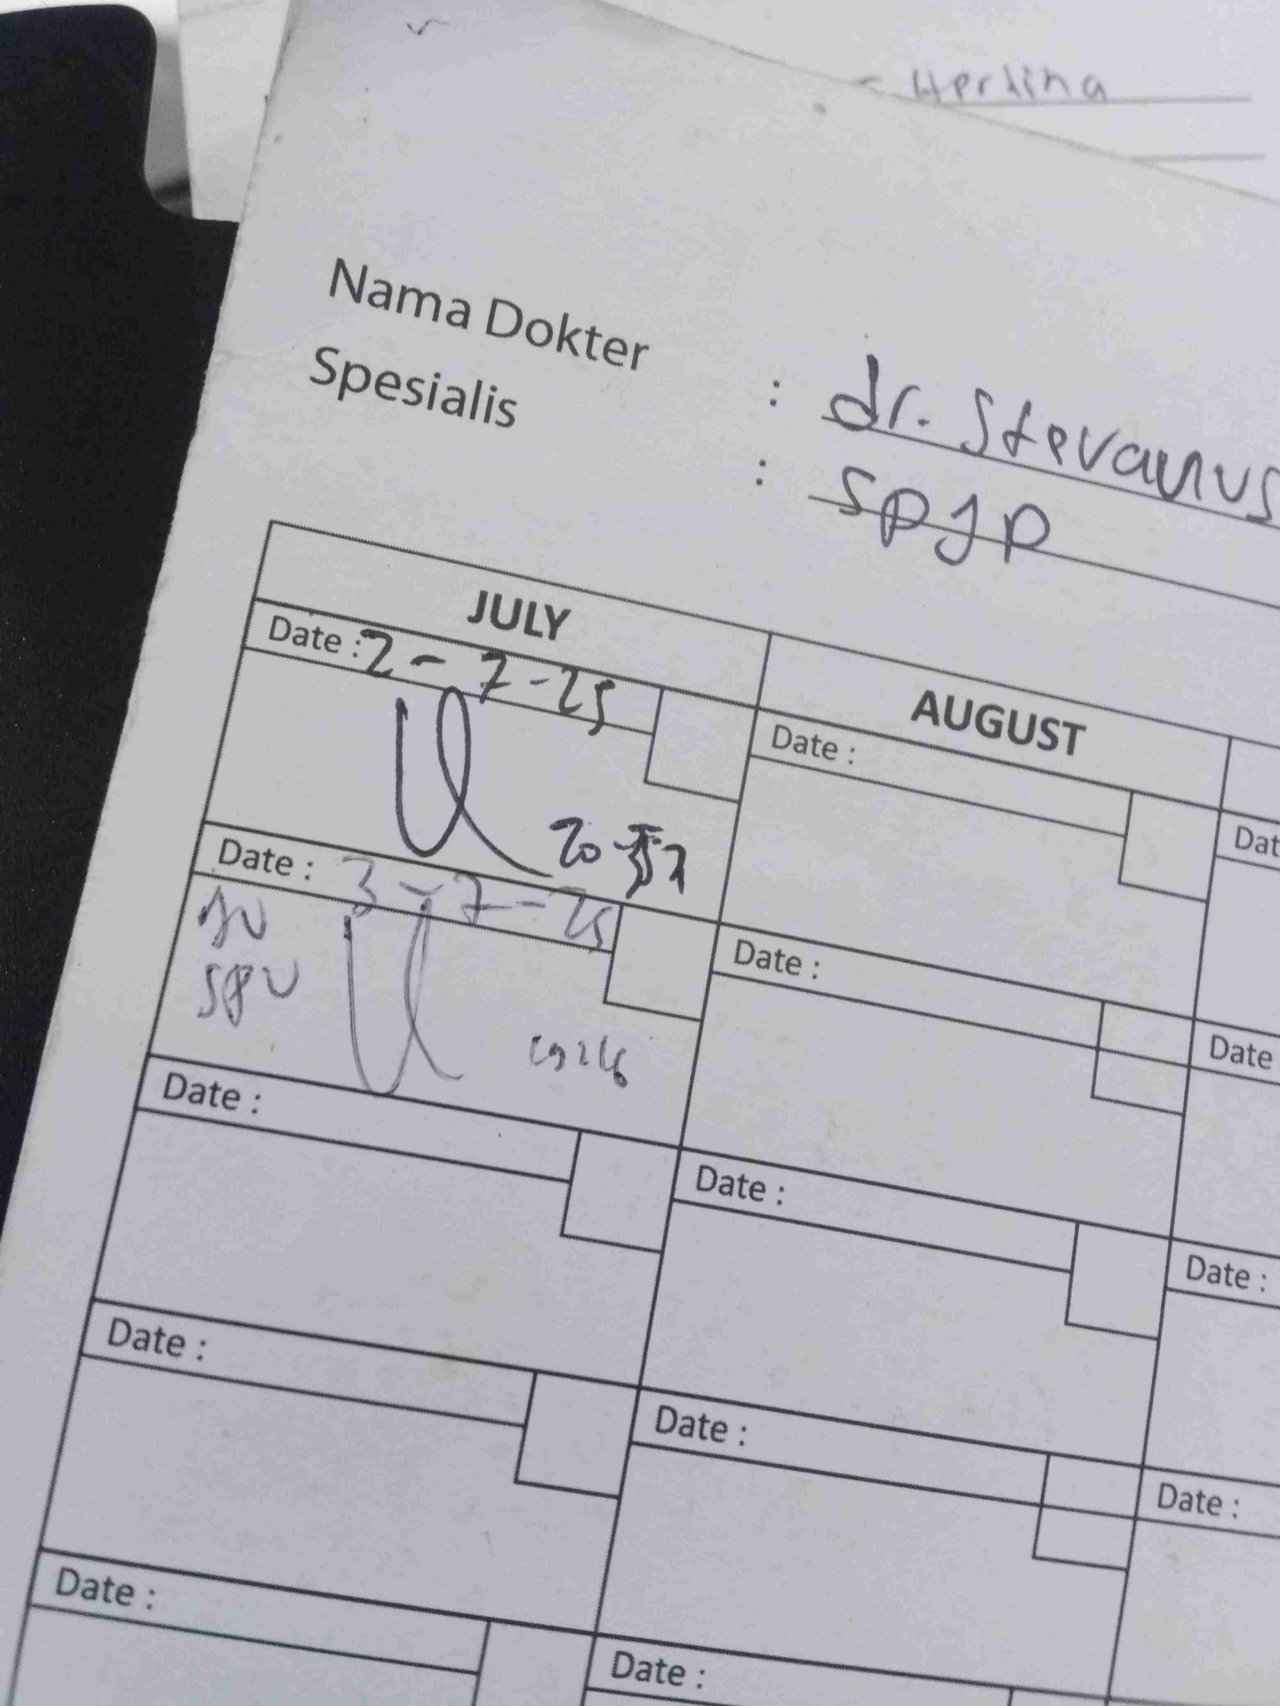 Herlina
Nama Dokter : dr. Stevanus
Spesialis : SPJP
JULY
AUGUST
Date : 2 - 7 - 25
Date :
Dat
Date : 3 - 7 - 25
Date :
Date
Date :
Date :
Date :
Date :
Date :
Date :
Date :
Date :